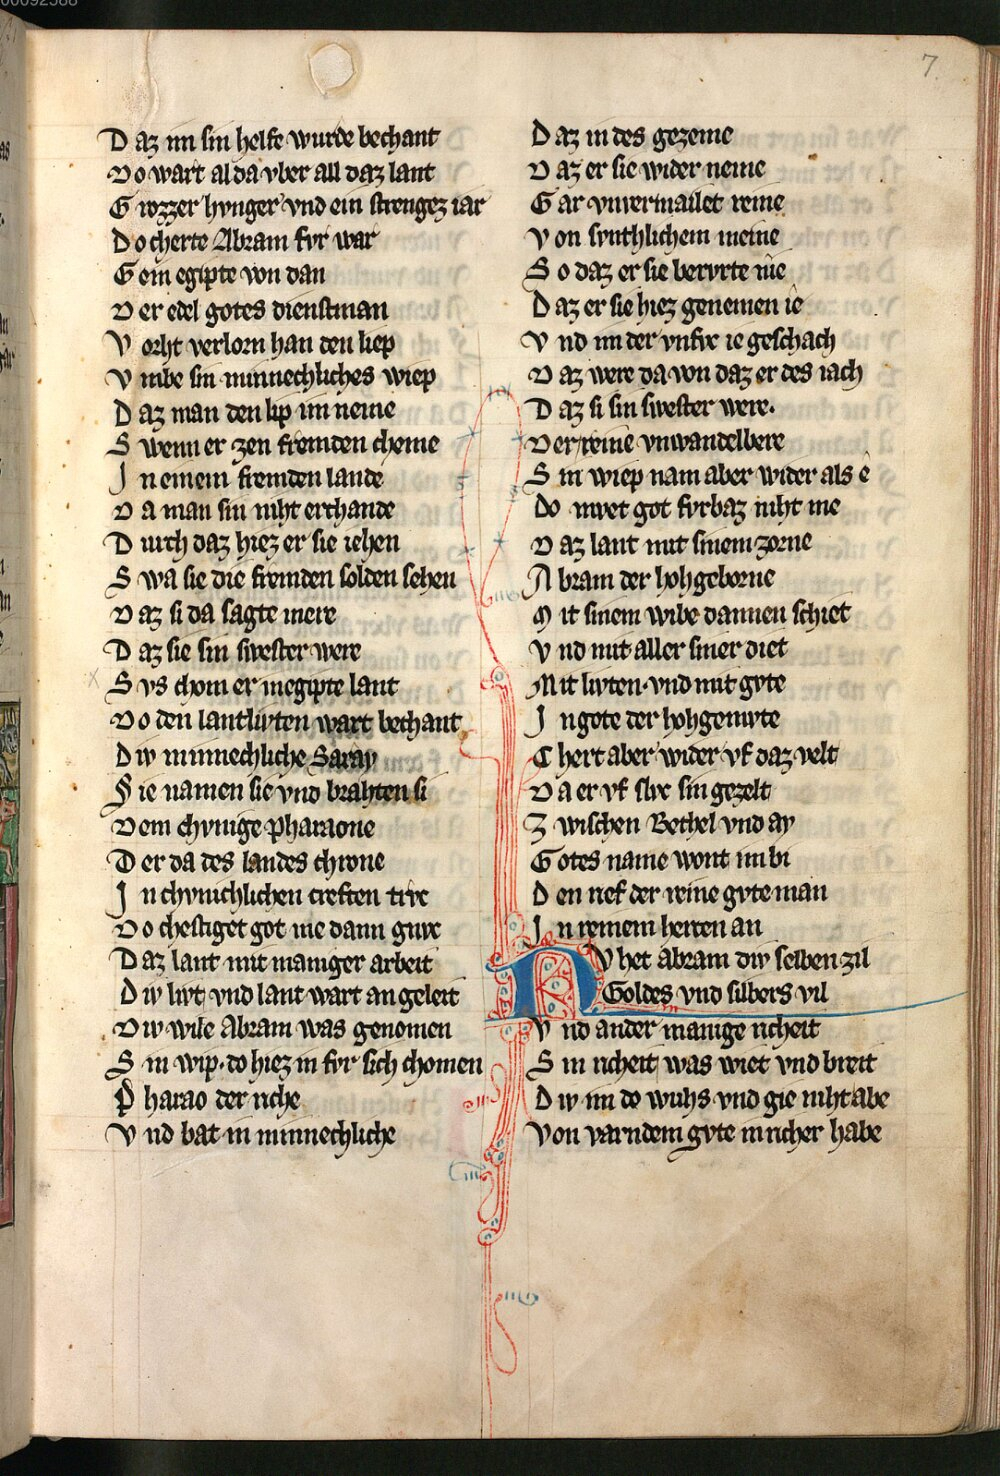 7
Daz im sin helfe wurde bechant
Do wart al da vber all daz lant
Grozzer hvnger vnd ein strengez iar
Do cherte Abram fvr war
Gein egipte von dan
Der edel gotes dienstman
Vorht verlorn han den liep
Vmbe sin minnechliches wiep
Daz man den lip im neme
Swenn er zen fremden cheme
In einem fremden lande
Da man sin niht erchande
Durch daz hiez er sie iehen
Swa sie die fremden solden sehen
Daz si da sagte mere
Daz sie sin swester were
Svs chom er in egipte lant
Do den lantlivten wart bechant
Div minnechliche Saray
Sie namen sie vnd brahten si
Dem chvnige Pharaone
Der da des landes chrone
In chvnichlichen creften trvc
Do chestiget got nie dann gnvc
Daz lant mit maniger arbeit
Div livt vnd lant wart an geleit
Div wile Abram was genomen
Sin wip. do hiez in fvr sich chomen
Pharao der riche
Vnd bat in minnechliche
Daz in des gezeme
Daz er sie wider neme
Gar vnvermailet reine
Von synthlichem meine
So daz er sie bervrte nie
Daz er sie hiez genemen ie
Vnd im der vnfvc ie geschach
Daz were da von daz er des iach
Daz si sin swester were.
Der reine vnwandelbere
Sin wiep nam aber wider als e
Do mvet got fvrbaz niht me
Daz lant mit sinem zorne
Abram der hohgeborne
Mit sinem wibe dannen schiet
Vnd mit aller siner diet
Mit livten. vnd mit gvte
In gote der hohgemvte
Chert aber wider vf daz velt
Da er vf slvc sin gezelt
Zwischen Bethel vnd ay
Gotes name wont im bi
Den rief der reine gvte man
In reinem hercen an
Nv het Abram div selben zil
Goldes vnd silbers vil
Vnd ander manige richeit
Sin richeit was wiet vnd breit
Div im do wuhs vnd gie niht abe
Von varndem gvte in richer habe